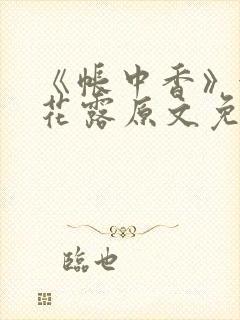 《帐中香》
花露原文免
臨也